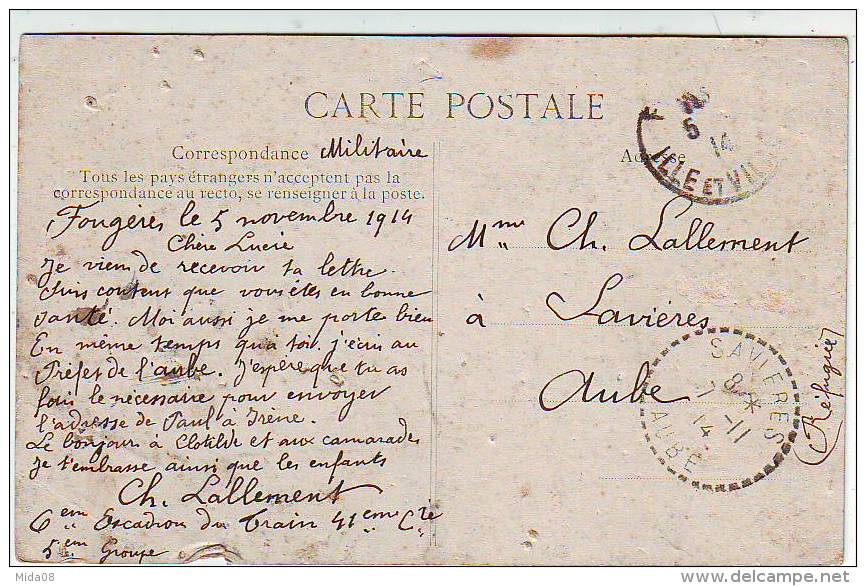 CARTE POSTALE
Correspondance Militaire
Tous les pays étrangers n'acceptent pas la
correspondance au recto, se renseigner à la poste.
Adresse
Fougeres le 5 novembre 1914
Chère Lucie
Je viens de recevoir ta lettre.
Suis content que vous êtes en bonne
santé. Moi aussi je me porte bien
En même temps qua toi. j'écris au
Préfet de l'aube. J'espère que tu as
fais le nécessaire pour envoyer
l'adresse de Paul à Irène.
Le bonjour à Clotilde et aux camarades
Je t'embrasse ainsi que les enfants
Ch. Lallement
6em Escadron du Train 41eme Cie
5em Groupe
Mme Ch. Lallement
à Savières
Aube
(Réfugiée)
5
14
ILLE ET VIL
SAVIERES
8 *
7 -11
14
AUBE
Mida08
www.delcampe.net